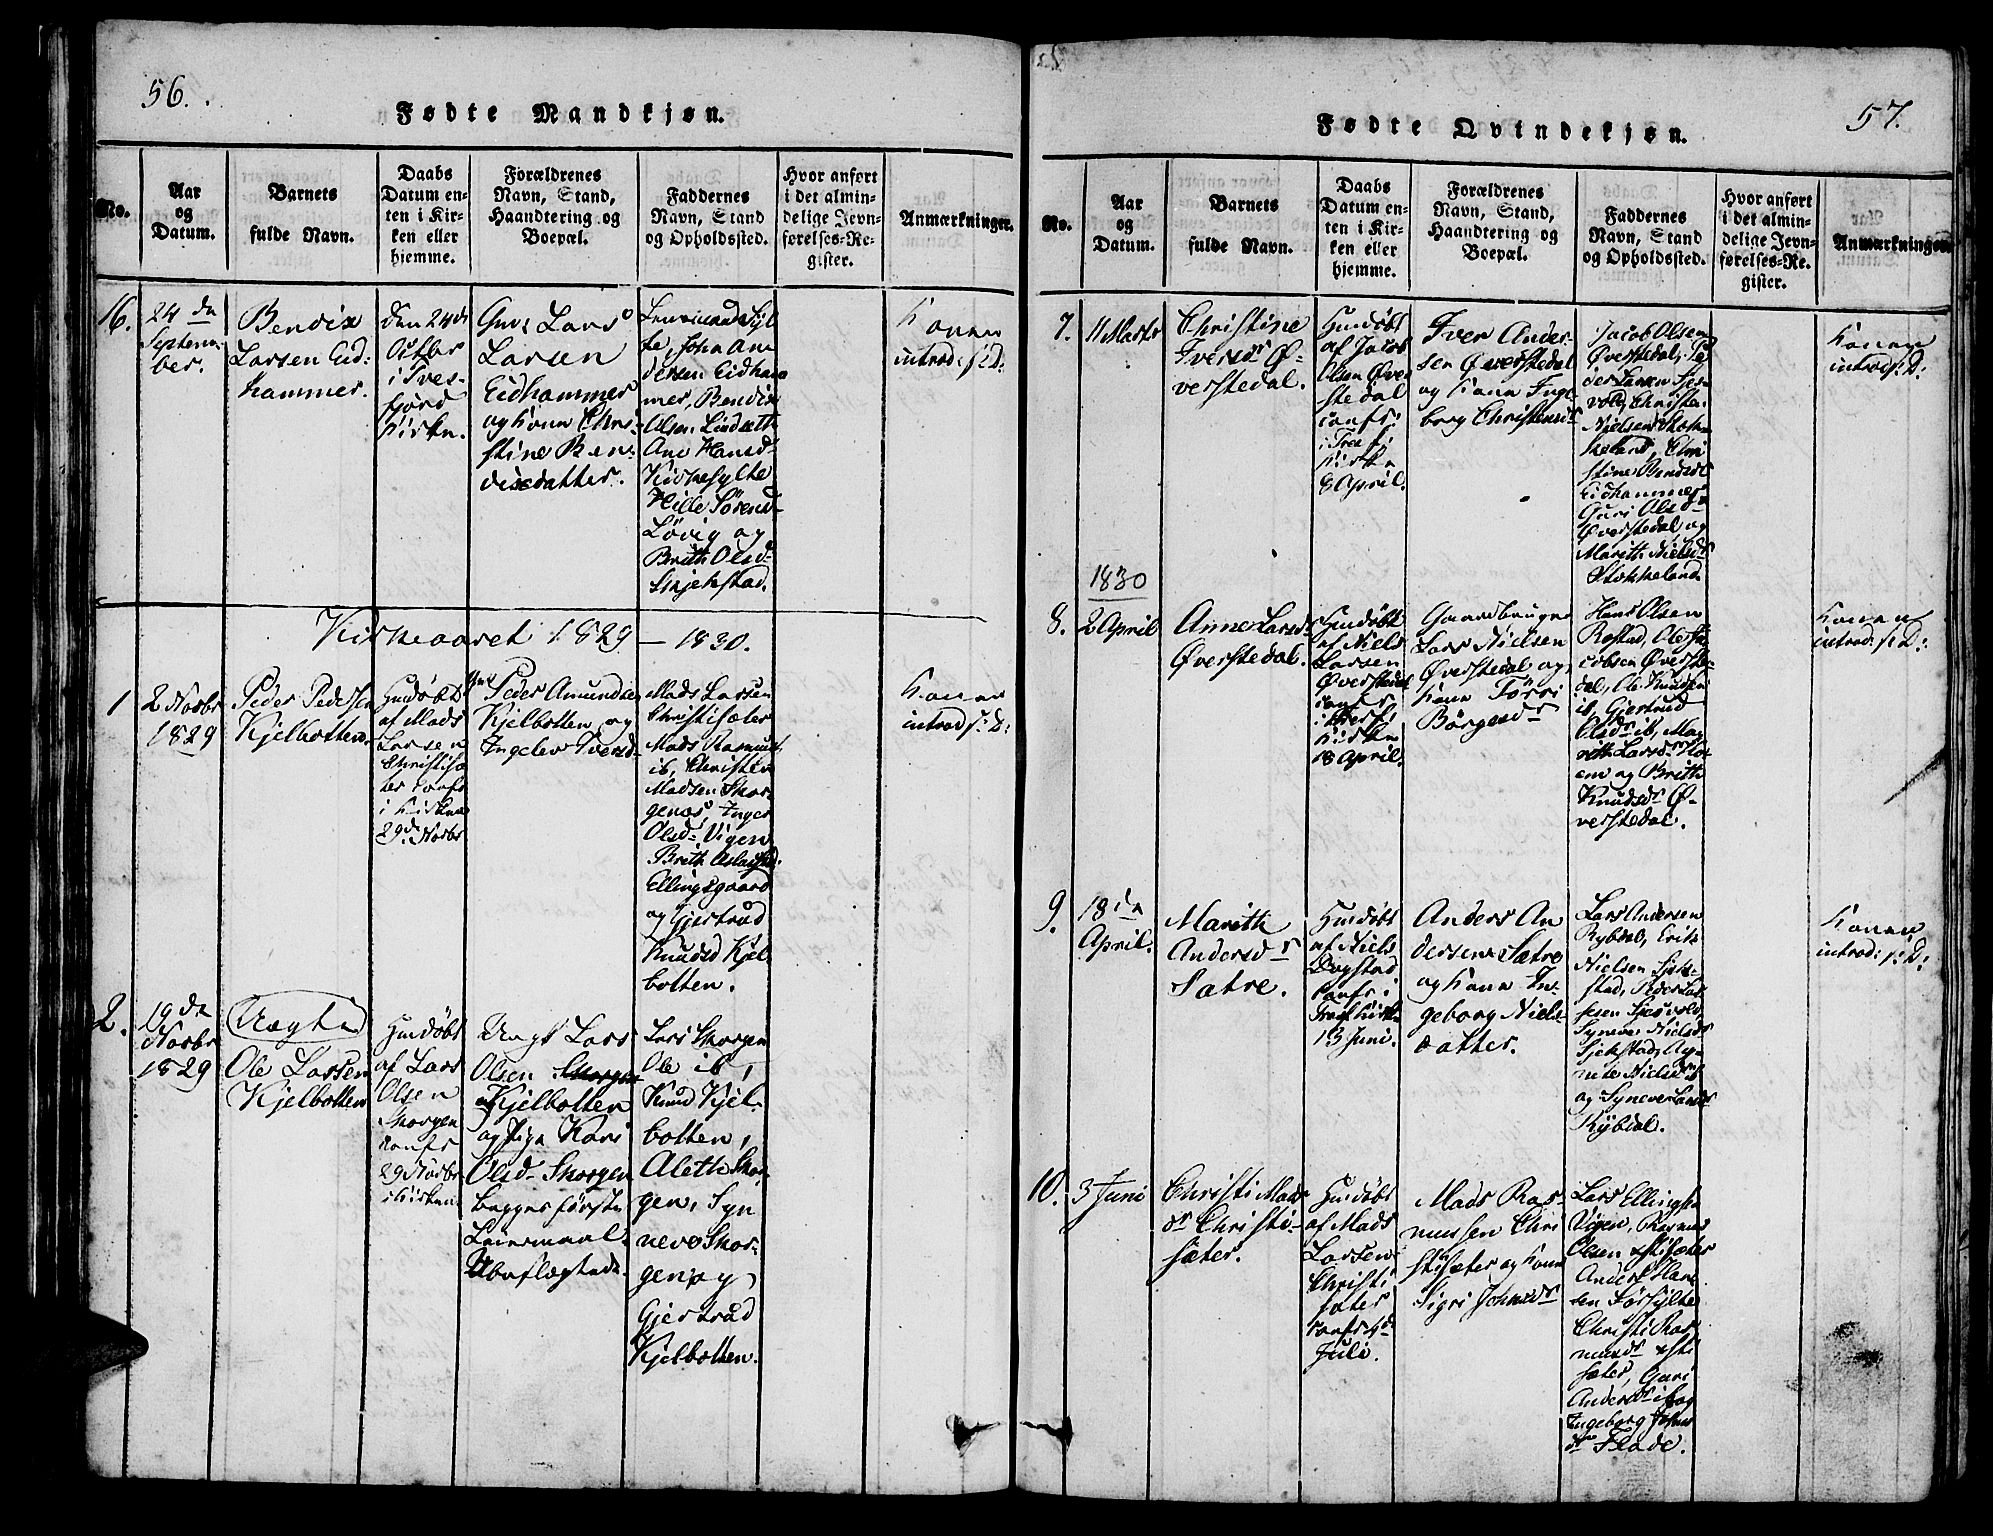 56.
Fødte Mandkjøn.
No.
Aar
og
Datum.
Barnets
fulde Navn.
Daabs
Datum en-
ten i Kir-
ken eller
hjemme.
Forældrenes
Navn, Stand,
Haandtering og
Boepæl.
Faddernes
Navn, Stand
og Opholdssted.
Hvor anført
i det almin-
delige Jevn-
førelses-Re-
gister.
Anmærkninger.
16.
24 de
Septem-
ber.
Bendix
Larsen Eid-
hammer.
den 24de
Octbr
i Tres-
fjord
Kirke.
Lars
Larsen
Eidhammer
og Kone Chri-
stine Ben-
dixdatter.
John An-
dersen Eidham-
mer, Bendix
Olsen Lindseth
Ane Hansd-
Kirkesylte
Hille Sørend-
Løvig og
Brith Olsd-
Skjelstad.
Konen
introd: s: D:
Kirkeaaret 1829 – 1830.
1
2 Novbr
1829
Peder Pedersen
Kjelbotten.
Hiemdøbt
af Mads
Larsen
Christisæ-
ter
i Kirken
29de Novbr
Peder Amundsen
Kjelbotten og
Ingeler Iversd-
Mads Larsen
Christisæter
Mads Rasmus.
ib, Christen
Madsen Skor-
genæs, Inger
Olsd- Vigen
Brith
Ellingsgaard
og Gjertrud
Knudsd Kjel-
botten.
Konen
introd s: D:
2.
19de
Novbr
1829
Uægte
Ole Larsen
Kjelbotten
Hiemdøbt
af Lars
Olsen
Skorgen
29 Novbr
i Kirken
Lars
Olsen
Kjelbotten
og Pige Kari
Olsd- Skorgen
begges første
Leiermaal.
Lars Skorgen
Ole ib,
Knud Kjel-
botten,
Aleth Skor-
gen, Syn-
neve Skor-
gen og
Gjertrud
Kjelbotten.
57.
Fødte Qvindekjøn.
No.
Aar
og
Datum.
Barnets
fulde Navn.
Daabs
Datum en-
ten i Kir-
ken eller
hjemme.
Forældrenes
Navn, Stand,
Haandtering og
Boepæl.
Faddernes
Navn, Stand
og Opholdssted.
Hvor anført
i det almin-
delige Jevn-
førelses-Re-
gister.
Anmærkninger.
7.
11 Marts
Christine
Iversdr Ø-
verstedal.
Hiemdøbt
af Jacob
Olsen Øver-
stedal
confr:
i Tresfj
Kirke
8 April.
Iver Ander-
sen Øverstedal
og Kone Inge-
borg Christensdr
Jacob Olsen
Øverstedal, Pe-
der Larsen
Christen
Nielsen Stok-
keland, Chri-
stine Bendixdr
Eidhammer
Guri Olsdr
Øverstedal og
Marith Nielsdr
Stokkeland
Konen
introd s: D:
1830
8.
2 April
Anne Larsdr
Øverstedal.
Hiemdøbt
af Niels
Larsen
Øverstedal
confr
i Tresfj
Kirke
18 April.
Gaardbruger
Lars Nielsen
Øverstedal og
Kone Førri
Børgesdr
Hans Olsen
Rostad, Ole Ja-
cobsen Øverste-
dal, Ole Knudsen
ib, Gjertrud
Olsdr ib, Mar-
ith Larsdr
og Brith
Knudsdr Ø-
verstedal.
Konen
introd: s: D:
9.
18de
April.
Marith
Andersdr
Sætre.
Hiemdøbt
af Niels
Dagstad
confr i
Tresf Kirke
13 Juni.
Anders An-
dersen Sætre
og Kone In-
geborg Niels-
datter.
Lars Andersen
Rybdal, Erik
Nielsen
Peder Lar-
sen
Synever Nielsdr
og Synever Larsdr
Rybdal.
Konen
introd: s: D:
10.
3 Juni
Christi Mads-
dr Christi-
sæter.
Hiemdøbt
af Mads
Larsen
Christi-
sæter
confr 4de
Juli.
Mads Ras-
mussen Chri-
stisæter og Kone
Sigri Johnsdr
Lars Ellingsen
Vigen, Rasmus
Olsen xstisæter
Anders Han-
sen Sørsylte
Christi Ras-
musdr xsti-
sæter, Guri
Andersdr ib og
Ingeborg Johns-
dr Flode.